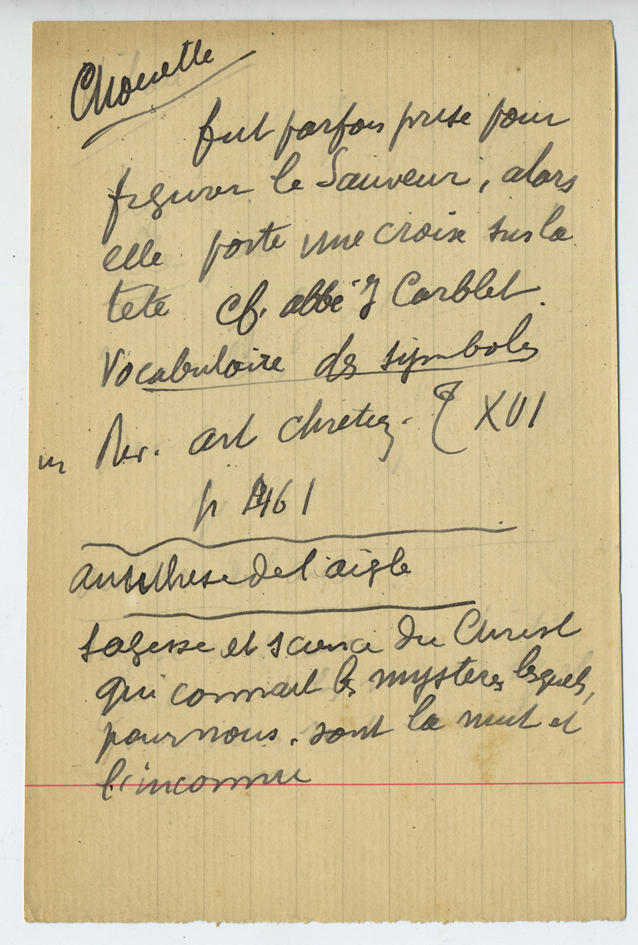 Chouette
fut parfois prise pour
figurer le Sauveur, alors
elle porte une croix sur la
tete cf. abbé J Corblet.
Vocabulaire des symboles
in Rev. art chretien. T XVI
p 461
antithese de l'aigle
sagesse et science du Christ
qui connait les mysteres lesquels,
pour nous, sont la nuit et
l'inconnu